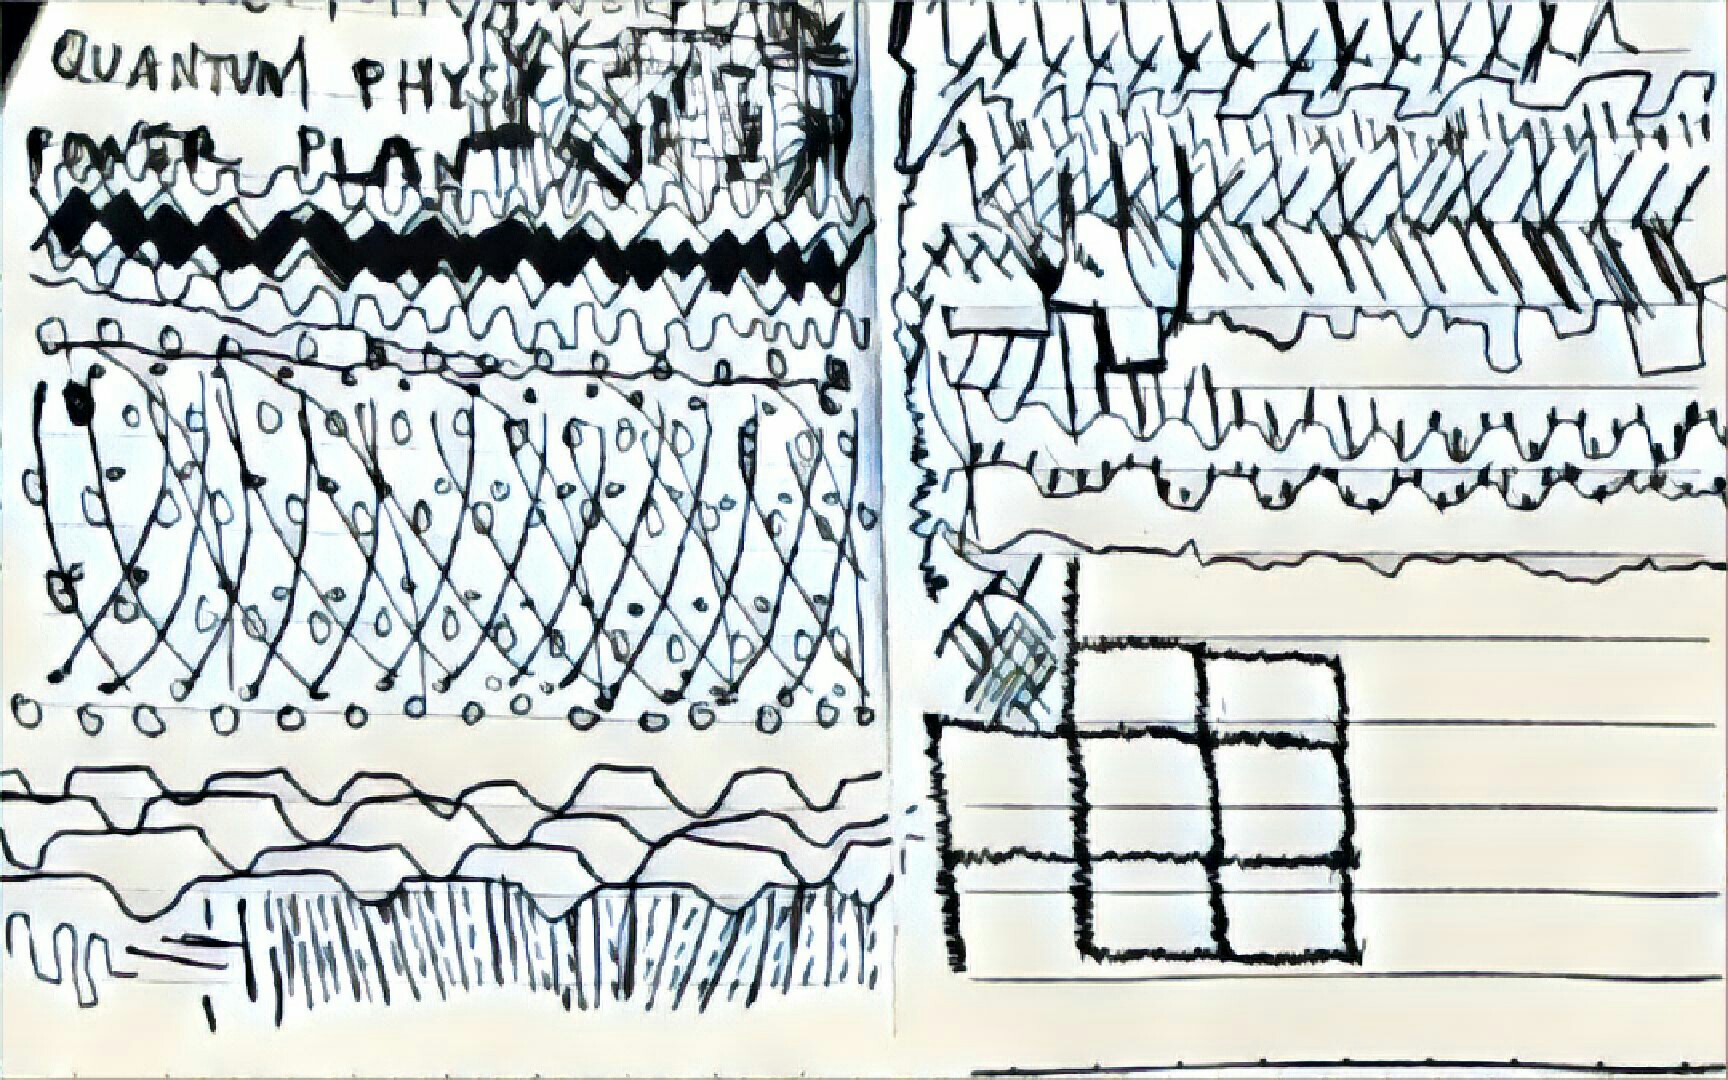 QUANTUM PHYSICS
POWER PLAN